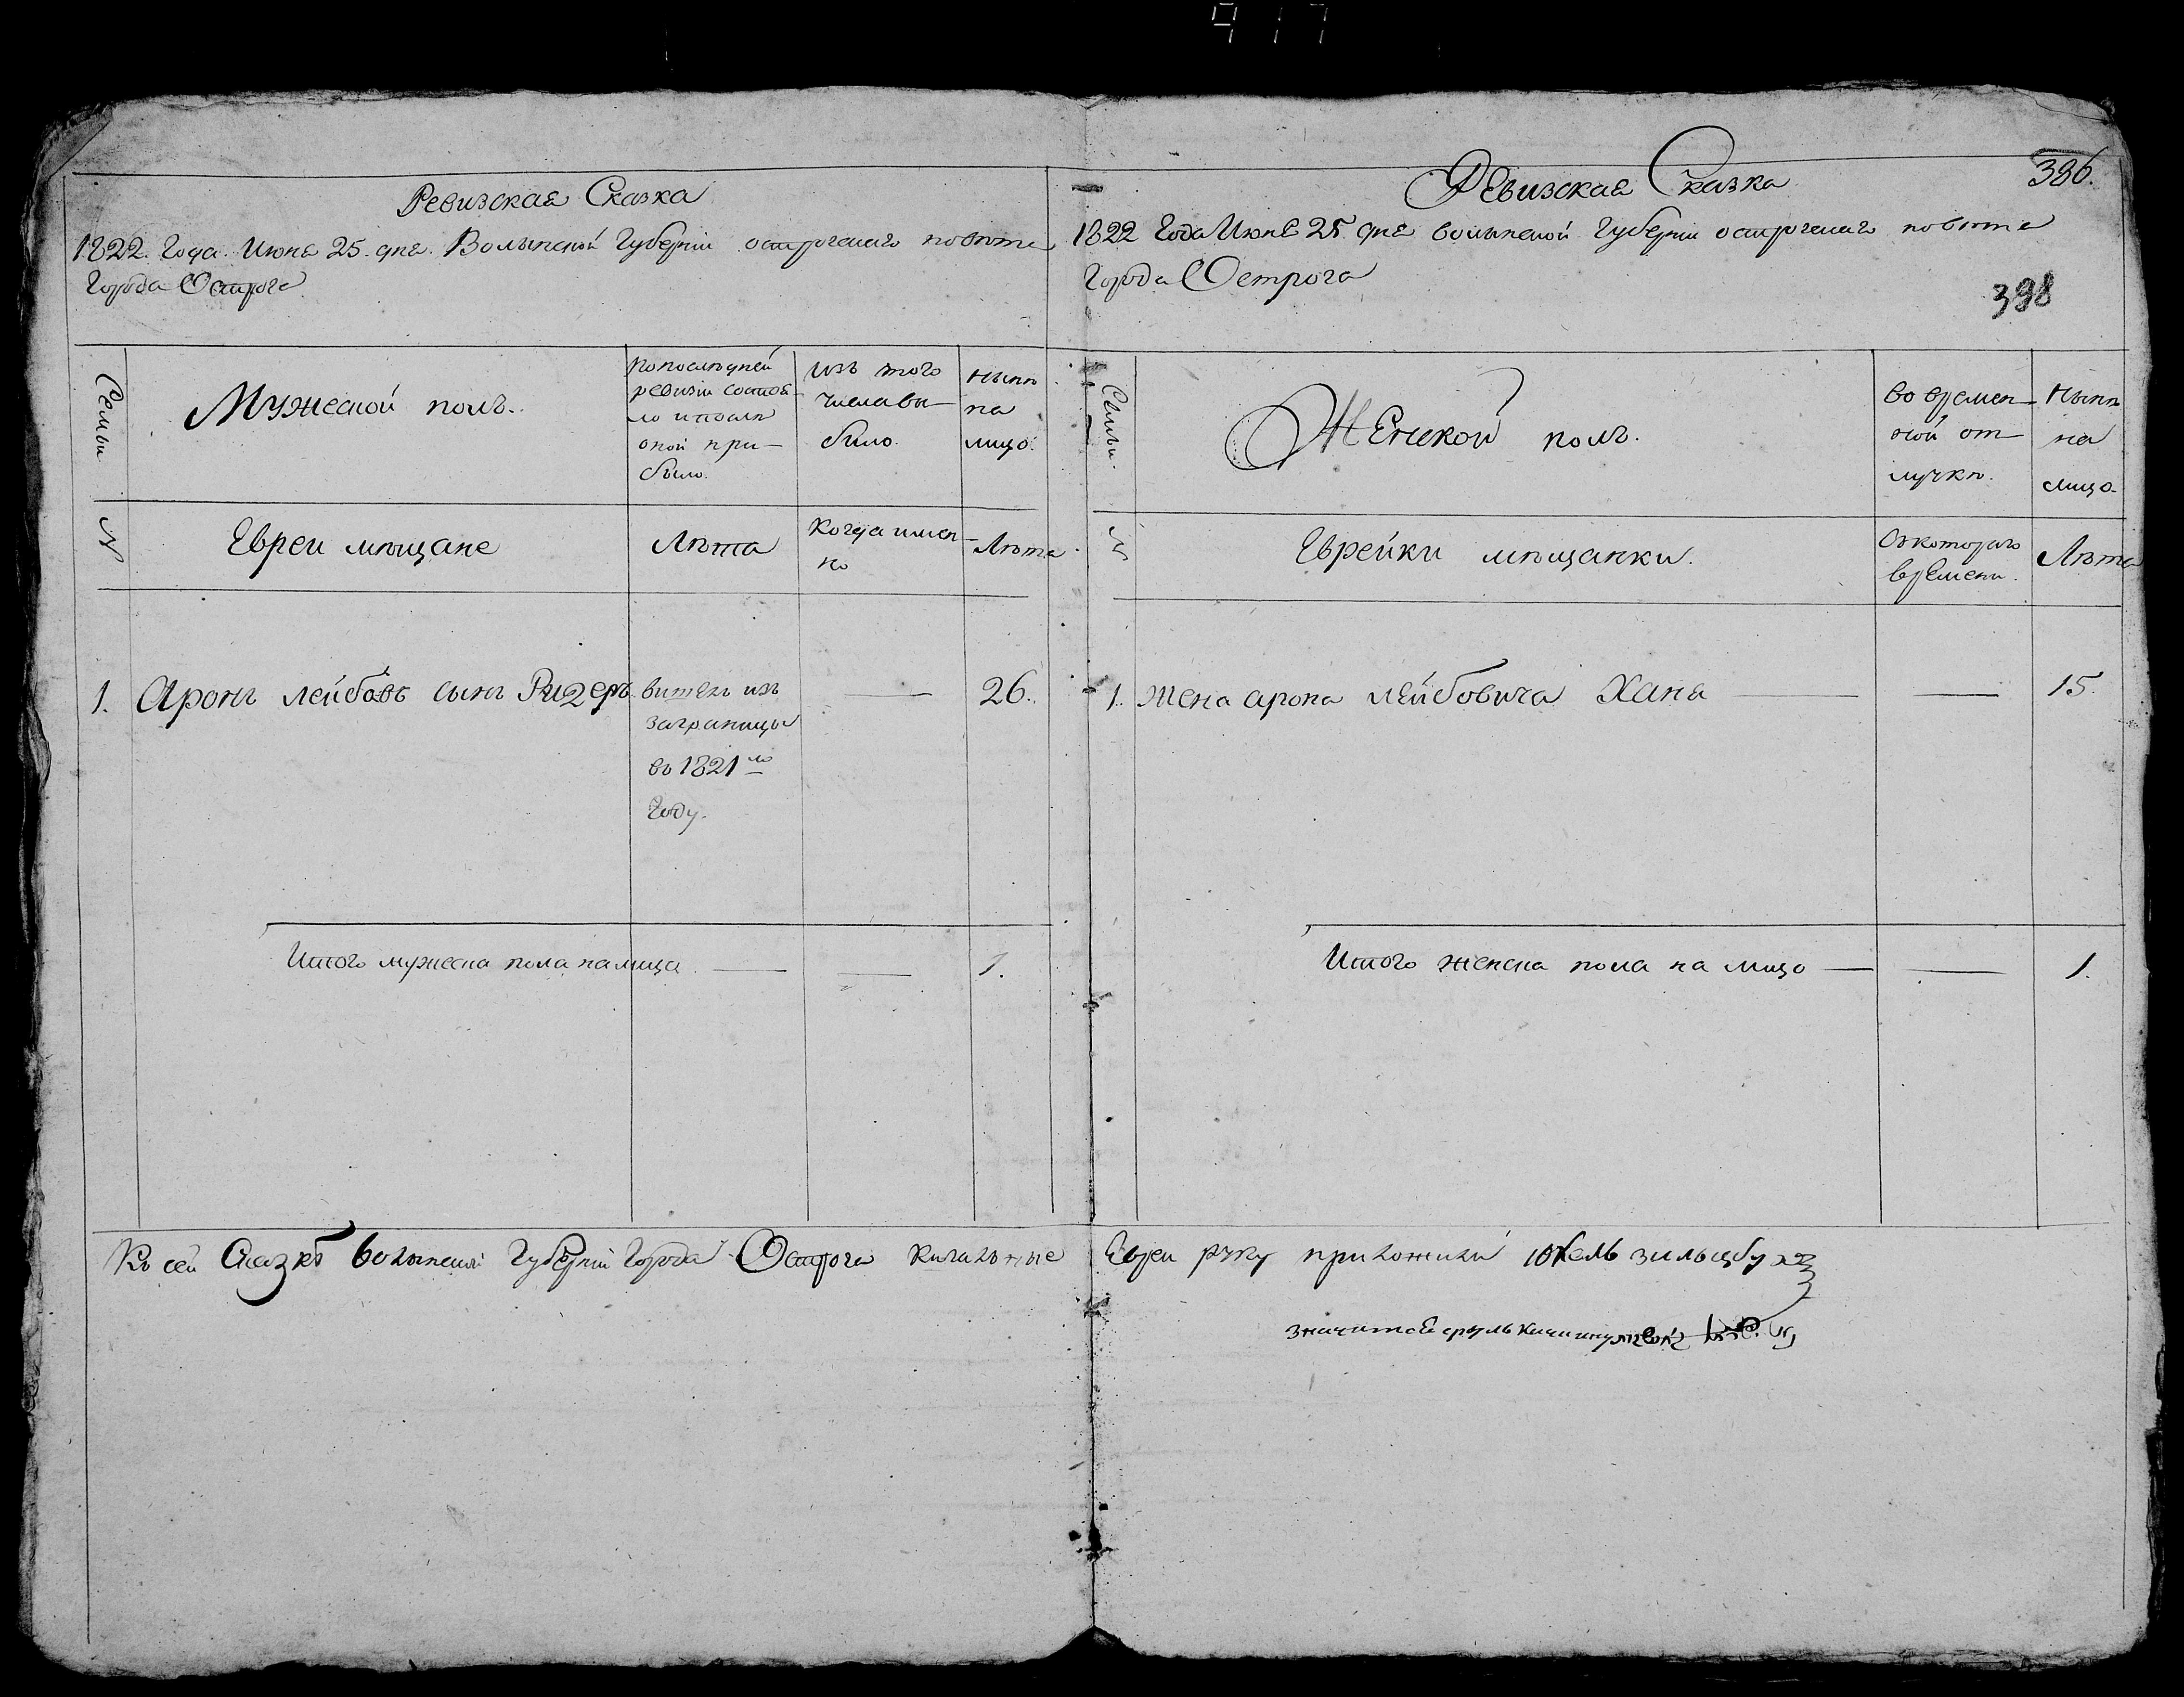 Ревизская Сказка
1822. Года. Июня 25. дня. Волынской Губернии острогскаго повѣта
Города Острога
Семьи
Мужеской полъ.
По последней
ревизіи состоя-
ло и после
оной при-
было.
изъ того
числа вы-
было.
Нынѣ
на
лицо.
№
Евреи мѣщане
Лѣта
Когда имен-
но
Лѣта.
1. Аронъ Лейбовъ сынъ Ридеръ
вишелъ изъ
заграницы
въ 1821 мъ
Году.
26.
Итого мужеска пола на лицо
1.
Къ сей Сказкѣ волынской Губерніи Города Острога кагальные
386.
Ревизская Сказка
1822 Года Июня 25. дня волынской Губерніи острогскаго повѣта
Города Острога
398
Семьи.
Женской полъ.
во времен-
ной от-
лучкѣ.
Нынѣ
на
лицо.
№
Еврейки мѣщанки.
Съ котораго
времени.
Лѣта
1. Жена арона лейбовича Хана
15.
Итого женска пола на лицо
1.
Евреи руку приложили